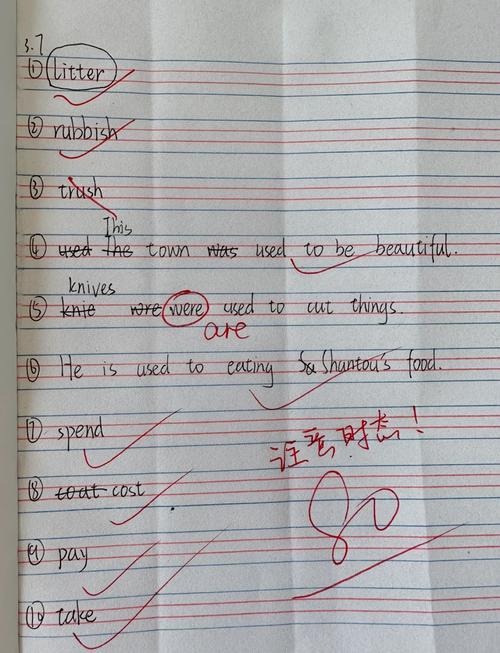 3.7
① litter
② rubbish
③ trush
This
④ used the town was used to be beautiful.
knives
⑤ knie wre were used to cut things.
are
⑥ He is used to eating Sa Shantou's food.
⑦ spend
注意时态!
⑧ coat cost
80
⑨ pay
⑩ take